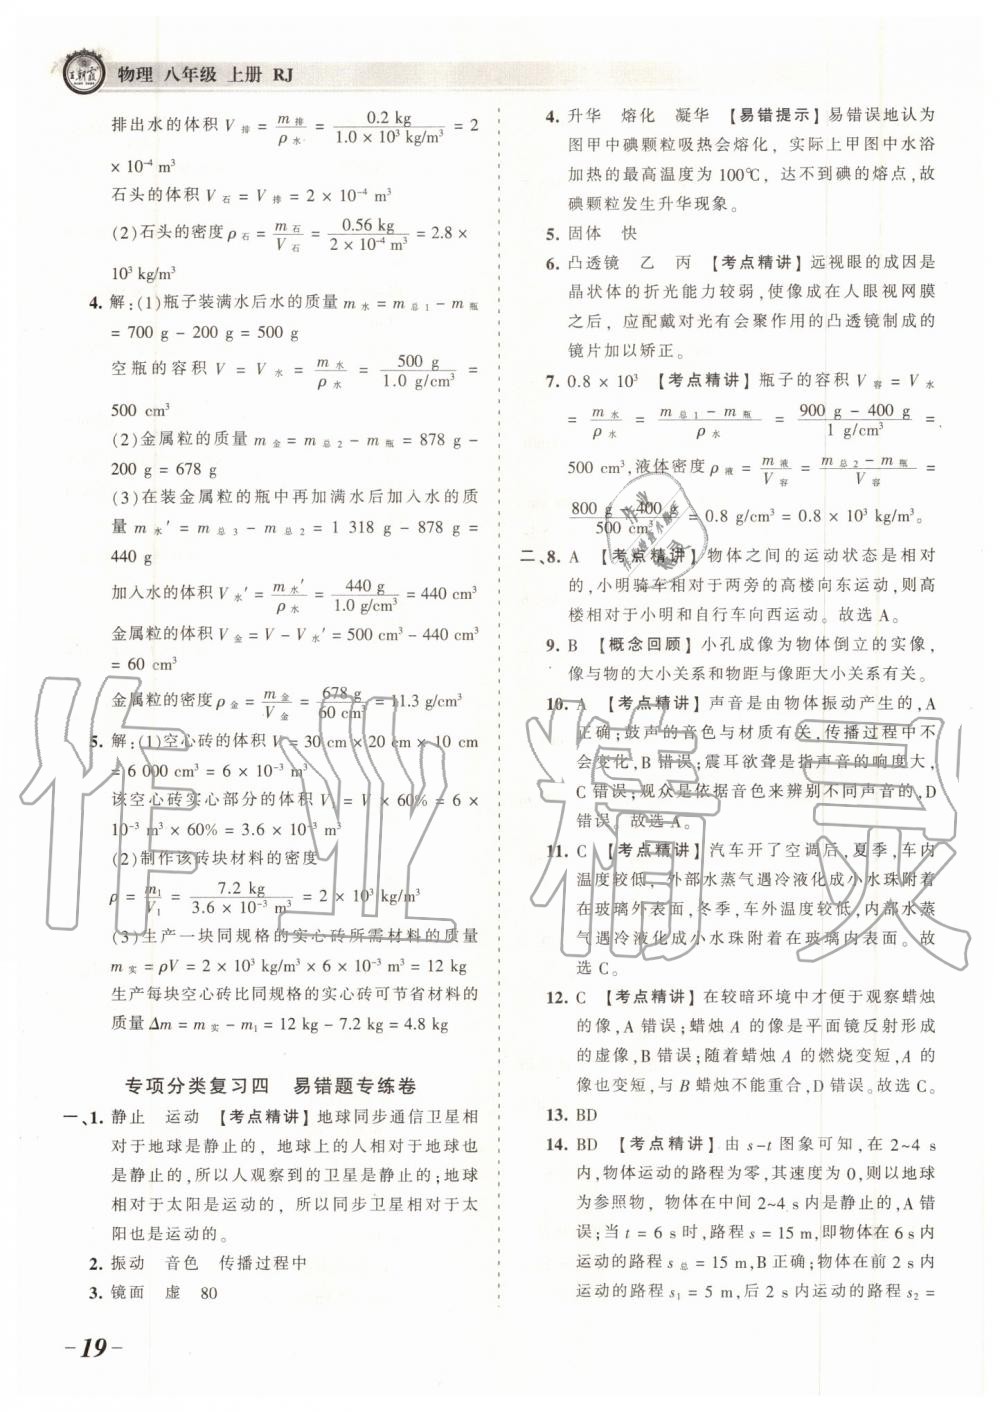 王朝霞
物理 八年级 上册 RJ
排出水的体积 V排 = m排/ρ水 = 0.2 kg/1.0 × 10³ kg/m³ = 2
× 10⁻⁴ m³
石头的体积 V石 = V排 = 2 × 10⁻⁴ m³
(2)石头的密度 ρ石 = m石/V石 = 0.56 kg/2 × 10⁻⁴ m³ = 2.8 ×
10³ kg/m³
4. 解:(1)瓶子装满水后水的质量 m水 = m总1 − m瓶
= 700 g − 200 g = 500 g
空瓶的容积 V = V水 = m水/ρ水 = 500 g/1.0 g/cm³ =
500 cm³
(2)金属粒的质量 m金 = m总2 − m瓶 = 878 g −
200 g = 678 g
(3)在装金属粒的瓶中再加满水后加入水的质
量 m水′ = m总3 − m总2 = 1 318 g − 878 g =
440 g
加入水的体积 V水′ = m水′/ρ水 = 440 g/1.0 g/cm³ = 440 cm³
金属粒的体积 V金 = V − V水′ = 500 cm³ − 440 cm³
= 60 cm³
金属粒的密度 ρ金 = m金/V金 = 678 g/60 cm³ = 11.3 g/cm³
5. 解:(1)空心砖的体积 V = 30 cm × 20 cm × 10 cm
= 6 000 cm³ = 6 × 10⁻³ m³
该空心砖实心部分的体积 V₁ = V × 60% = 6 ×
10⁻³ m³ × 60% = 3.6 × 10⁻³ m³
(2)制作该砖块材料的密度
ρ = m₁/V₁ = 7.2 kg/3.6 × 10⁻³ m³ = 2 × 10³ kg/m³
(3)生产一块同规格的实心砖所需材料的质量
m实 = ρV = 2 × 10³ kg/m³ × 6 × 10⁻³ m³ = 12 kg
生产每块空心砖比同规格的实心砖可节省材料的
质量 Δm = m实 − m₁ = 12 kg − 7.2 kg = 4.8 kg
专项分类复习四 易错题专练卷
一、1. 静止 运动 【考点精讲】地球同步通信卫星相
对于地球是静止的，地球上的人相对于地球也是
静止的，所以人观察到的卫星是静止的;地球
相对于太阳是运动的，所以同步卫星相对于太
阳也是运动的。
2. 振动 音色 传播过程中
3. 镜面 虚 80
- 19 -
4. 升华 熔化 凝华 【易错提示】易错误地认为
图甲中碘颗粒吸热会熔化，实际上甲图中水浴
加热的最高温度为 100℃，达不到碘的熔点，故
碘颗粒发生升华现象。
5. 固体 快
6. 凸透镜 乙 丙 【考点精讲】远视眼的成因是
晶状体的折光能力较弱，使像成在人眼视网膜
之后，应配戴对光有会聚作用的凸透镜制成的
镜片加以矫正。
7. 0.8 × 10³ 【考点精讲】瓶子的容积 V容 = V水
= m水/ρ水 = m总1 − m瓶/ρ水 = 900 g − 400 g/1 g/cm³ =
500 cm³,液体密度 ρ液 = m液/V容 = m总2 − m瓶/V容 =
800 g − 400 g/500 cm³ = 0.8 g/cm³ = 0.8 × 10³ kg/m³。
二、8. A 【考点精讲】物体之间的运动状态是相对
的,小明骑车相对于两旁的高楼向东运动，则高
楼相对于小明和自行车向西运动。故选 A。
9. B 【概念回顾】小孔成像为物体倒立的实像，
像与物的大小关系和物距与像距大小关系有关。
10. A 【考点精讲】声音是由物体振动产生的，A
正确;鼓声的音色与材质有关,传播过程中不
会变化,B 错误;震耳欲聋是指声音的响度大，
C 错误;观众是依据音色来辨别不同声音的,D
错误。故选 A。
11. C 【考点精讲】汽车开了空调后,夏季,车内
温度较低，外部水蒸气遇冷液化成小水珠附着
在玻璃外表面,冬季,车外温度较低,内部水蒸
气遇冷液化成小水珠附着在玻璃内表面。故
选 C。
12. C 【考点精讲】在较暗环境中才便于观察蜡烛
的像,A 错误;蜡烛 A 的像是平面镜反射形成
的虚像,B 错误;蜡烛 A 的燃烧变短,A 的
像也变短,C 正确;A、B 蜡烛不能重合,D 错误。故选 C。
13. BD
14. BD 【考点精讲】由 s−t 图象可知,在 2~4 s
内,物体运动的路程为零,其速度为 0,则以地球
为参照物，物体在中间 2~4 s 内是静止的,A 错
误;当 t = 6 s 时,路程 s = 15 m,即物体在 6 s 内
运动的路程 s总 = 15 m,B 正确;物体在前 2 s 内
运动的路程 s₁ = 5 m,后 2 s 内运动的路程 s₂ =
作业精灵